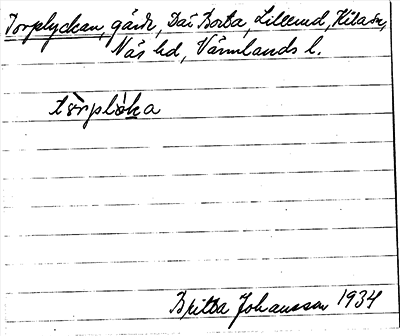 Torplyckan, gård, Dal Borta, Lillerud, Kila sn,
Näs hd, Värmlands l.
tòrpløka
Britta Johansson 1934